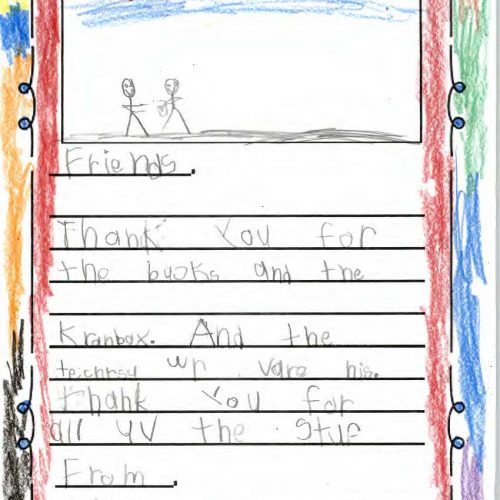 Friends.
Thank You for
the books and the
Kranbox. And the
teichrsd wr vare his.
thank You for
all uv the stuf
From.